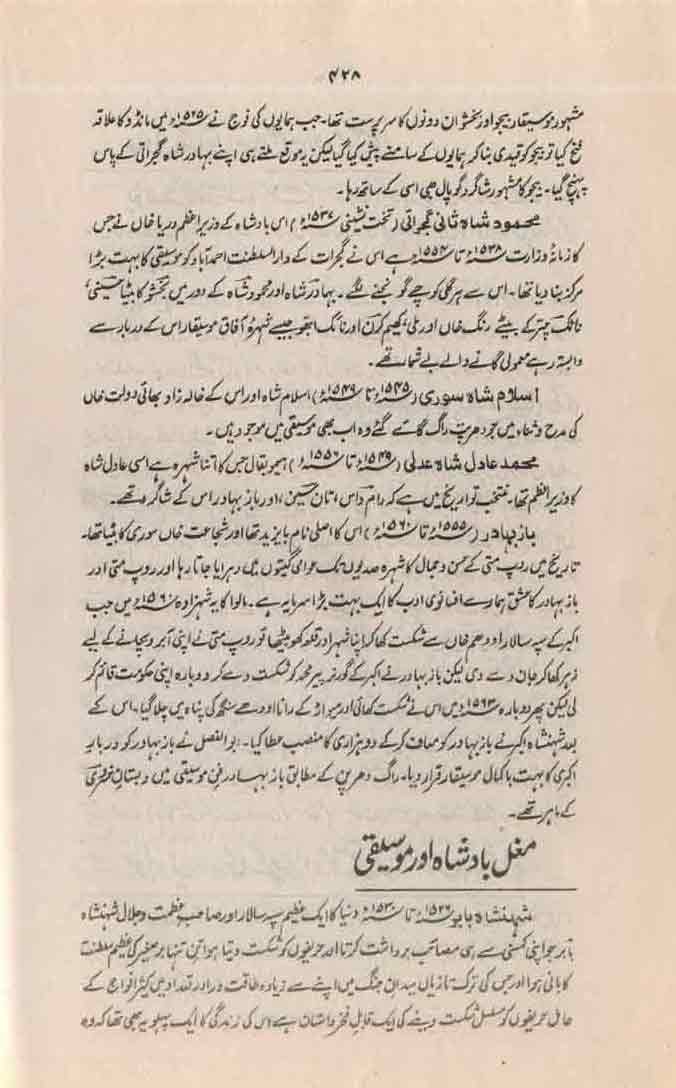 ۴۲۸
مشہور موسیقار بیجو اور بخشو ان دونوں کا سرپرست تھا۔ جب ہمایوں کی فوج نے ۱۵۳۵ء میں مانڈو کا علاقہ
فتح کیا تو بیجو کو قیدی بنا کر ہمایوں کے سامنے پیش کیا گیا لیکن یہ موقع ملتے ہی اپنے بہادر شاہ گجراتی کے پاس
پہنچ گیا۔ بیجو کا مشہور شاگرد گوپال بھی اسی کے ساتھ رہا۔
محمود شاہ ثانی گجراتی (تخت نشینی ۱۵۳۷ء) اس بادشاہ کے وزیر اعظم دریا خاں نے جس
کا زمانۂ وزارت ۱۵۳۸ء تا ۱۵۵۴ء ہے اس نے گجرات کے دارالسلطنت احمد آباد کو موسیقی کا بہت بڑا
مرکز بنا دیا تھا۔ اس سے ہر گلی کوچے گونجنے لگے۔ بہادر شاہ اور محمود شاہ کے دور میں بخشو کا بیٹا حسینی،
نائک چتر کے بیٹے رنگ خاں اور ملی، کھیم کرن اور نائک ابھو جیسے شہرۂ آفاق موسیقار اس کے دربار سے
وابستہ رہے معمولی گانے والے بے شمار تھے۔
اسلام شاہ سوری (۱۵۴۵ء تا ۱۵۴۹ء) اسلام شاہ اور اس کے خالہ زاد بھائی دولت خاں
کی مدح و ثناء میں جو دھرپت راگ گائے گئے وہ اب بھی موسیقی میں موجود ہیں۔
محمد عادل شاہ عدلی (۱۵۴۹ء تا ۱۵۵۶ء) ہیمو بقال جس کا اتنا شہرہ ہے اسی عادل شاہ
کا وزیر اعظم تھا۔ منتخب تواریخ میں ہے کہ رام داس، تان حسین، اور باز بہادر اس کے شاگرد تھے۔
باز بہادر (۱۵۵۵ء تا ۱۵۶۰ء) اس کا اصلی نام بایزید تھا اور شجاعت خاں سوری کا بیٹا تھا۔
تاریخ میں روپ متی کے حسن و جمال کا شہرہ صدیوں تک عوامی گیتوں میں دہرایا جاتا رہا اور روپ متی اور
باز بہادر کا عشق ہمارے افسانوی ادب کا ایک بہت بڑا سرمایہ ہے۔ مالوا کا یہ شہزادہ ۱۵۶۰ء میں جب
اکبر کے سپہ سالار ادھم خاں سے شکست کھا کر اپنا شہر اور قلعہ کھو بیٹھا تو روپ متی نے اپنی آبرو بچانے کے لیے
زہر کھا کر جان دے دی لیکن باز بہادر نے اکبر کے گورنر پیر محمد کو شکست دے کر دوبارہ اپنی حکومت قائم کر
لی لیکن پھر دوبارہ ۱۵۶۳ء میں اس نے شکست کھائی اور میواڑ کے رانا اودے سنگھ کی پناہ میں چلا گیا۔ اس کے
بعد شہنشاہ اکبر نے باز بہادر کو معاف کر کے دو ہزاری کا منصب عطا کیا۔ ابوالفضل نے باز بہادر کو دربار
اکبری کا بہت با کمال موسیقار قرار دیا۔ راگ دھرپن کے مطابق باز بہادر فن موسیقی میں دبستان
کے ماہر تھے۔
مغل بادشاہ اور موسیقی
شہنشاہ بابر ۱۵۲۶ء تا ۱۵۳۰ء دنیا کا ایک عظیم سپہ سالار اور صاحب عظمت و جلال شہنشاہ
بابر جو اپنی کمسنی سے ہی مصائب برداشت کرتا اور حریفوں کو شکست دیتا ہوا تن تنہا برصغیر کی عظیم سلطنت
کا بانی ہوا اور جس کی ترک تازیاں میدان جنگ میں اپنے سے زیادہ طاقت ور اور تعداد میں کثیر افواج کے
حامل حریفوں کو مسلسل شکست دینے کی ایک قابل فخر داستان ہے اس کی زندگی کا ایک پہلو یہ بھی تھا کہ وہ